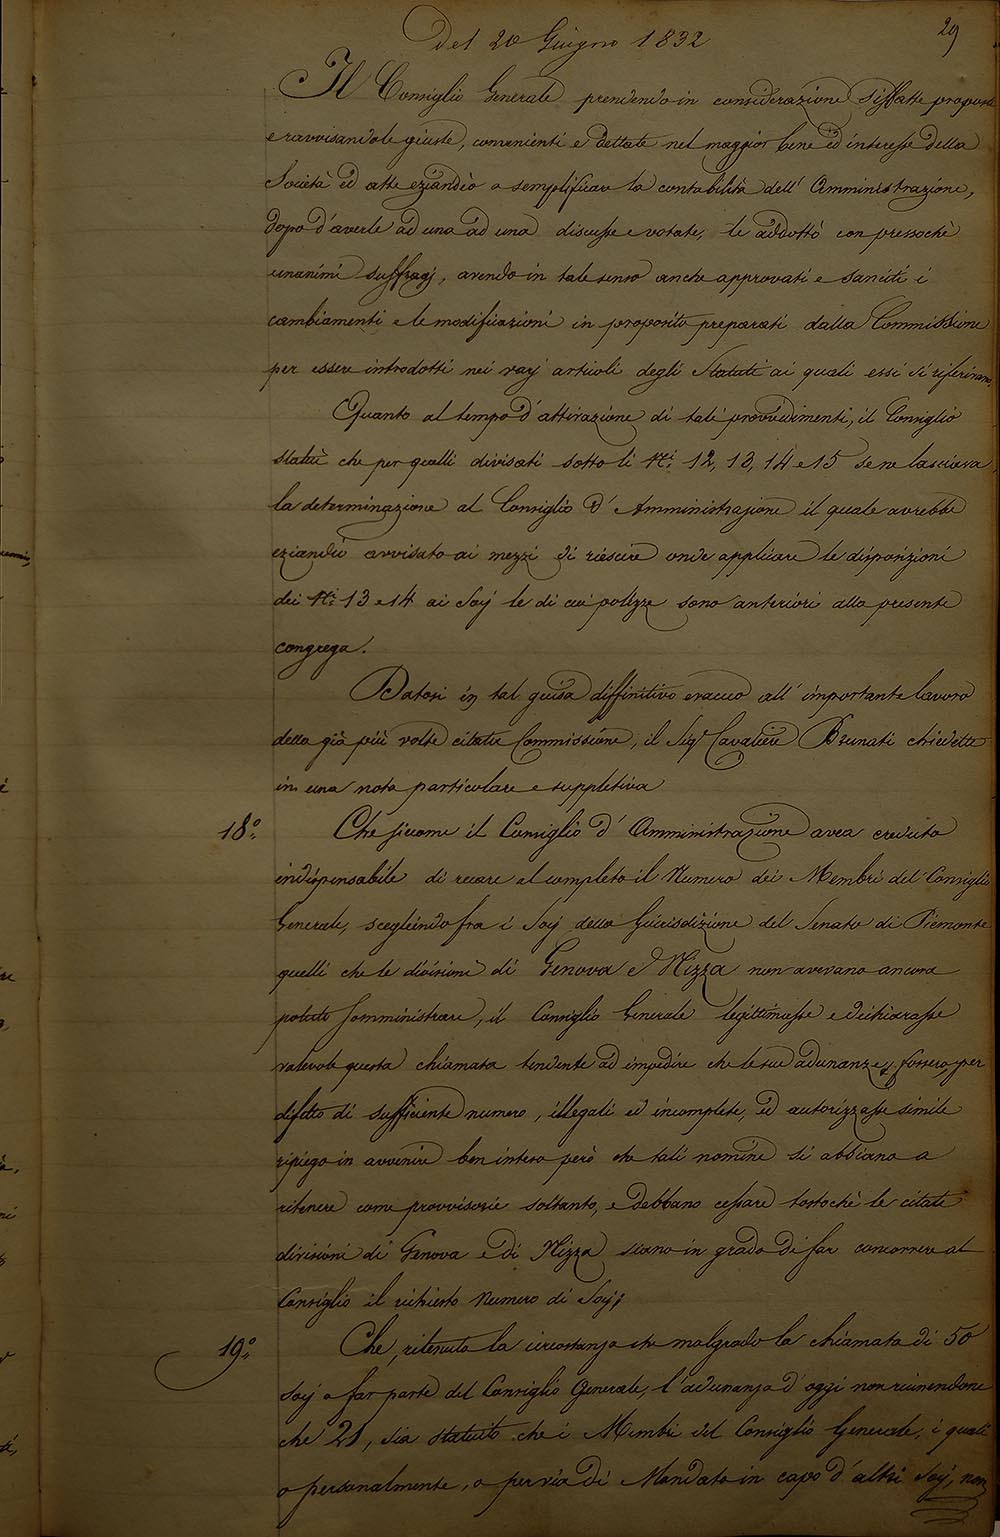 Del 20 Giugno 1832
29
Il Consiglio Generale prendendo in considerazione siffatte proposte
e ravvisandole giuste, convenienti e dettate nel maggior bene ed interesse della
Società ed atte eziandio a semplificare la contabilità dell' Amministrazione,
dopo d'averle ad una ad una discusse e votate, le addottò con pressochè
unanimi suffragj, avendo in tale senso anche approvati e sanciti i
cambiamenti e le modificazioni in proposito preparati dalla Commissione
per essere introdotti nei varj articoli degli Statuti ai quali essi si riferivano.
Quanto al tempo d'attivazione di tali provvedimenti, il Consiglio
statuì che per quelli divisati sotto li Ni. 12, 13, 14 e 15 se ne lasciava
la determinazione al Consiglio d' Amministrazione il quale avrebbe
eziandio avvisato ai mezzi di riescire onde applicare le disposizioni
dei Ni. 13 e 14 ai Socj le di cui polizze sono anteriori alla presente
congrega.
Datosi in tal guisa diffinitivo evacuo all' importante lavoro
della già più volte citata Commissione, il Sigr Cavaliere Brunati chiedette
in una nota particolare e suppletiva
18°. Che siccome il Consiglio d' Amministrazione avea creduto
indispensabile di recare al completo il Numero dei Membri del Consiglio
Generale, scegliendo fra i Socj della Giurisdizione del Senato di Piemonte
quelli che le divisioni di Genova e Nizza non avevano ancora
potuto somministrare, il Consiglio Generale legittimasse e dichiarasse
valevole questa chiamata tendente ad impedire che le sue adunanze fossero, per
difetto di sufficiente numero, illegali ed incomplete, ed autorizzasse simile
ripiego in avvenire ben inteso però che tali nomine si abbiano a
ritenere come provvisorie soltanto, e debbano cessare tostochè le citate
divisioni di Genova e di Nizza siano in grado di far concorrere al
Consiglio il richiesto Numero di Socj;
19°. Che, ritenuta la circostanza che malgrado la chiamata di 50
Socj a far parte del Consiglio Generale, l'adunanza d'oggi non riunendone
che 21, sia statuito che i Membri del Consiglio Generale, i quali
o personalmente, o per via di Mandato in capo d'altri Socj, non